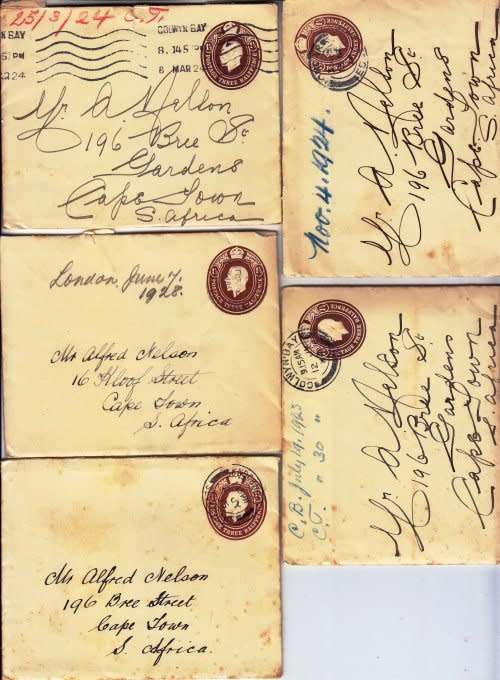 25/3/24 C.T.
COLWYN BAY
8.145 PM
8 MAR 24
Mr. A. Nelson
196 Bree St
Gardens
Cape Town
S. Africa
London, June 7,
1928.
Mr Alfred Nelson
16 Kloof Street
Cape Town
S. Africa
Mr Alfred Nelson
196 Bree Street
Cape Town
S. Africa.
Nov. 4. 1924.
Mr. A. Nelson
196 Bree St.
Gardens
Cape Town
S. Africa
COLWYN BAY
9.15AM
12
C.B. July 14, 1923
C.T. " 30 "
Mr. A. Nelson
196 Bree St.
Gardens
Cape Town
S. Africa